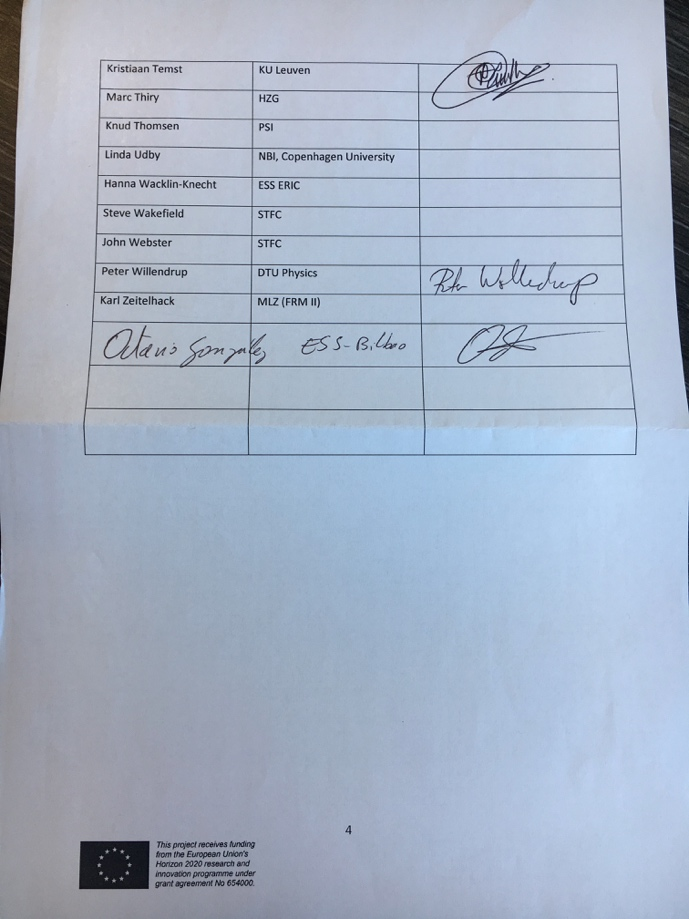 Kristiaan Temst KU Leuven
Marc Thiry HZG
Knud Thomsen PSI
Linda Udby NBI, Copenhagen University
Hanna Wacklin-Knecht ESS ERIC
Steve Wakefield STFC
John Webster STFC
Peter Willendrup DTU Physics Peter Willendrup
Karl Zeitelhack MLZ (FRM II)
Octavio González ESS-Bilbao
4
This project receives funding
from the European Union's
Horizon 2020 research and
innovation programme under
grant agreement No 654000.